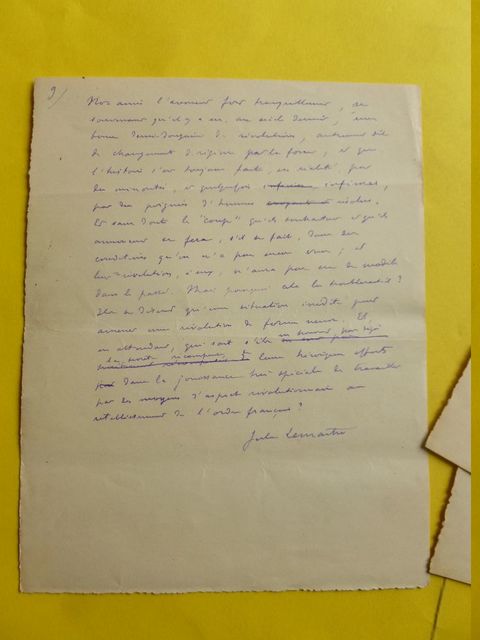 9/
Nos amis l'avouent fort tranquillement, se
souvenant qu'il y a eu, au siècle dernier, une
bonne demi-douzaine de révolutions, autrement dit
de changements de régime par la force, et que
l'histoire s'est toujours faite, en réalité, par
des minorités, et quelquefois infimes,
par des poignées d'hommes résolus.
Et sans doute le "coup" qu'ils souhaitent et qu'ils
annoncent se fera, s'il se fait, dans des
conditions qu'on n'a pas encore vues ; et
leur révolution, à eux, n'aura pas eu de modèle
dans le passé. Mais pourquoi cela les troublerait-il ?
qu'une situation inédite peut
amener une révolution de forme neuve. Et,
en attendant, qui sait s'ils ne sont pas déjà
récompensés de leurs héroïques efforts
dans la jouissance très spéciale de travailler
par des moyens d'aspect révolutionnaire au
rétablissement de l'ordre français ?
Jules Lemaître